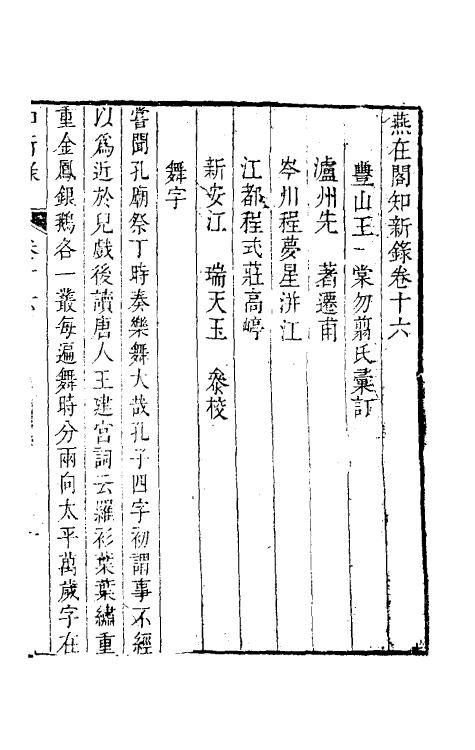 燕在閣知新錄卷十六
豐山王 棠勿翦氏彙訂
瀘州先 著遷甫
岑川程夢星洴江
江都程式莊高崞
新安江 瑞天玉 叅校
舞字
嘗聞孔廟祭丁時奏樂舞大哉孔子四字初謂事不經
以爲近於兒戲後讀唐人王建宮詞云羅衫葉葉繡重
重金鳳銀鵝各一叢每遍舞時分兩向太平萬歲字在